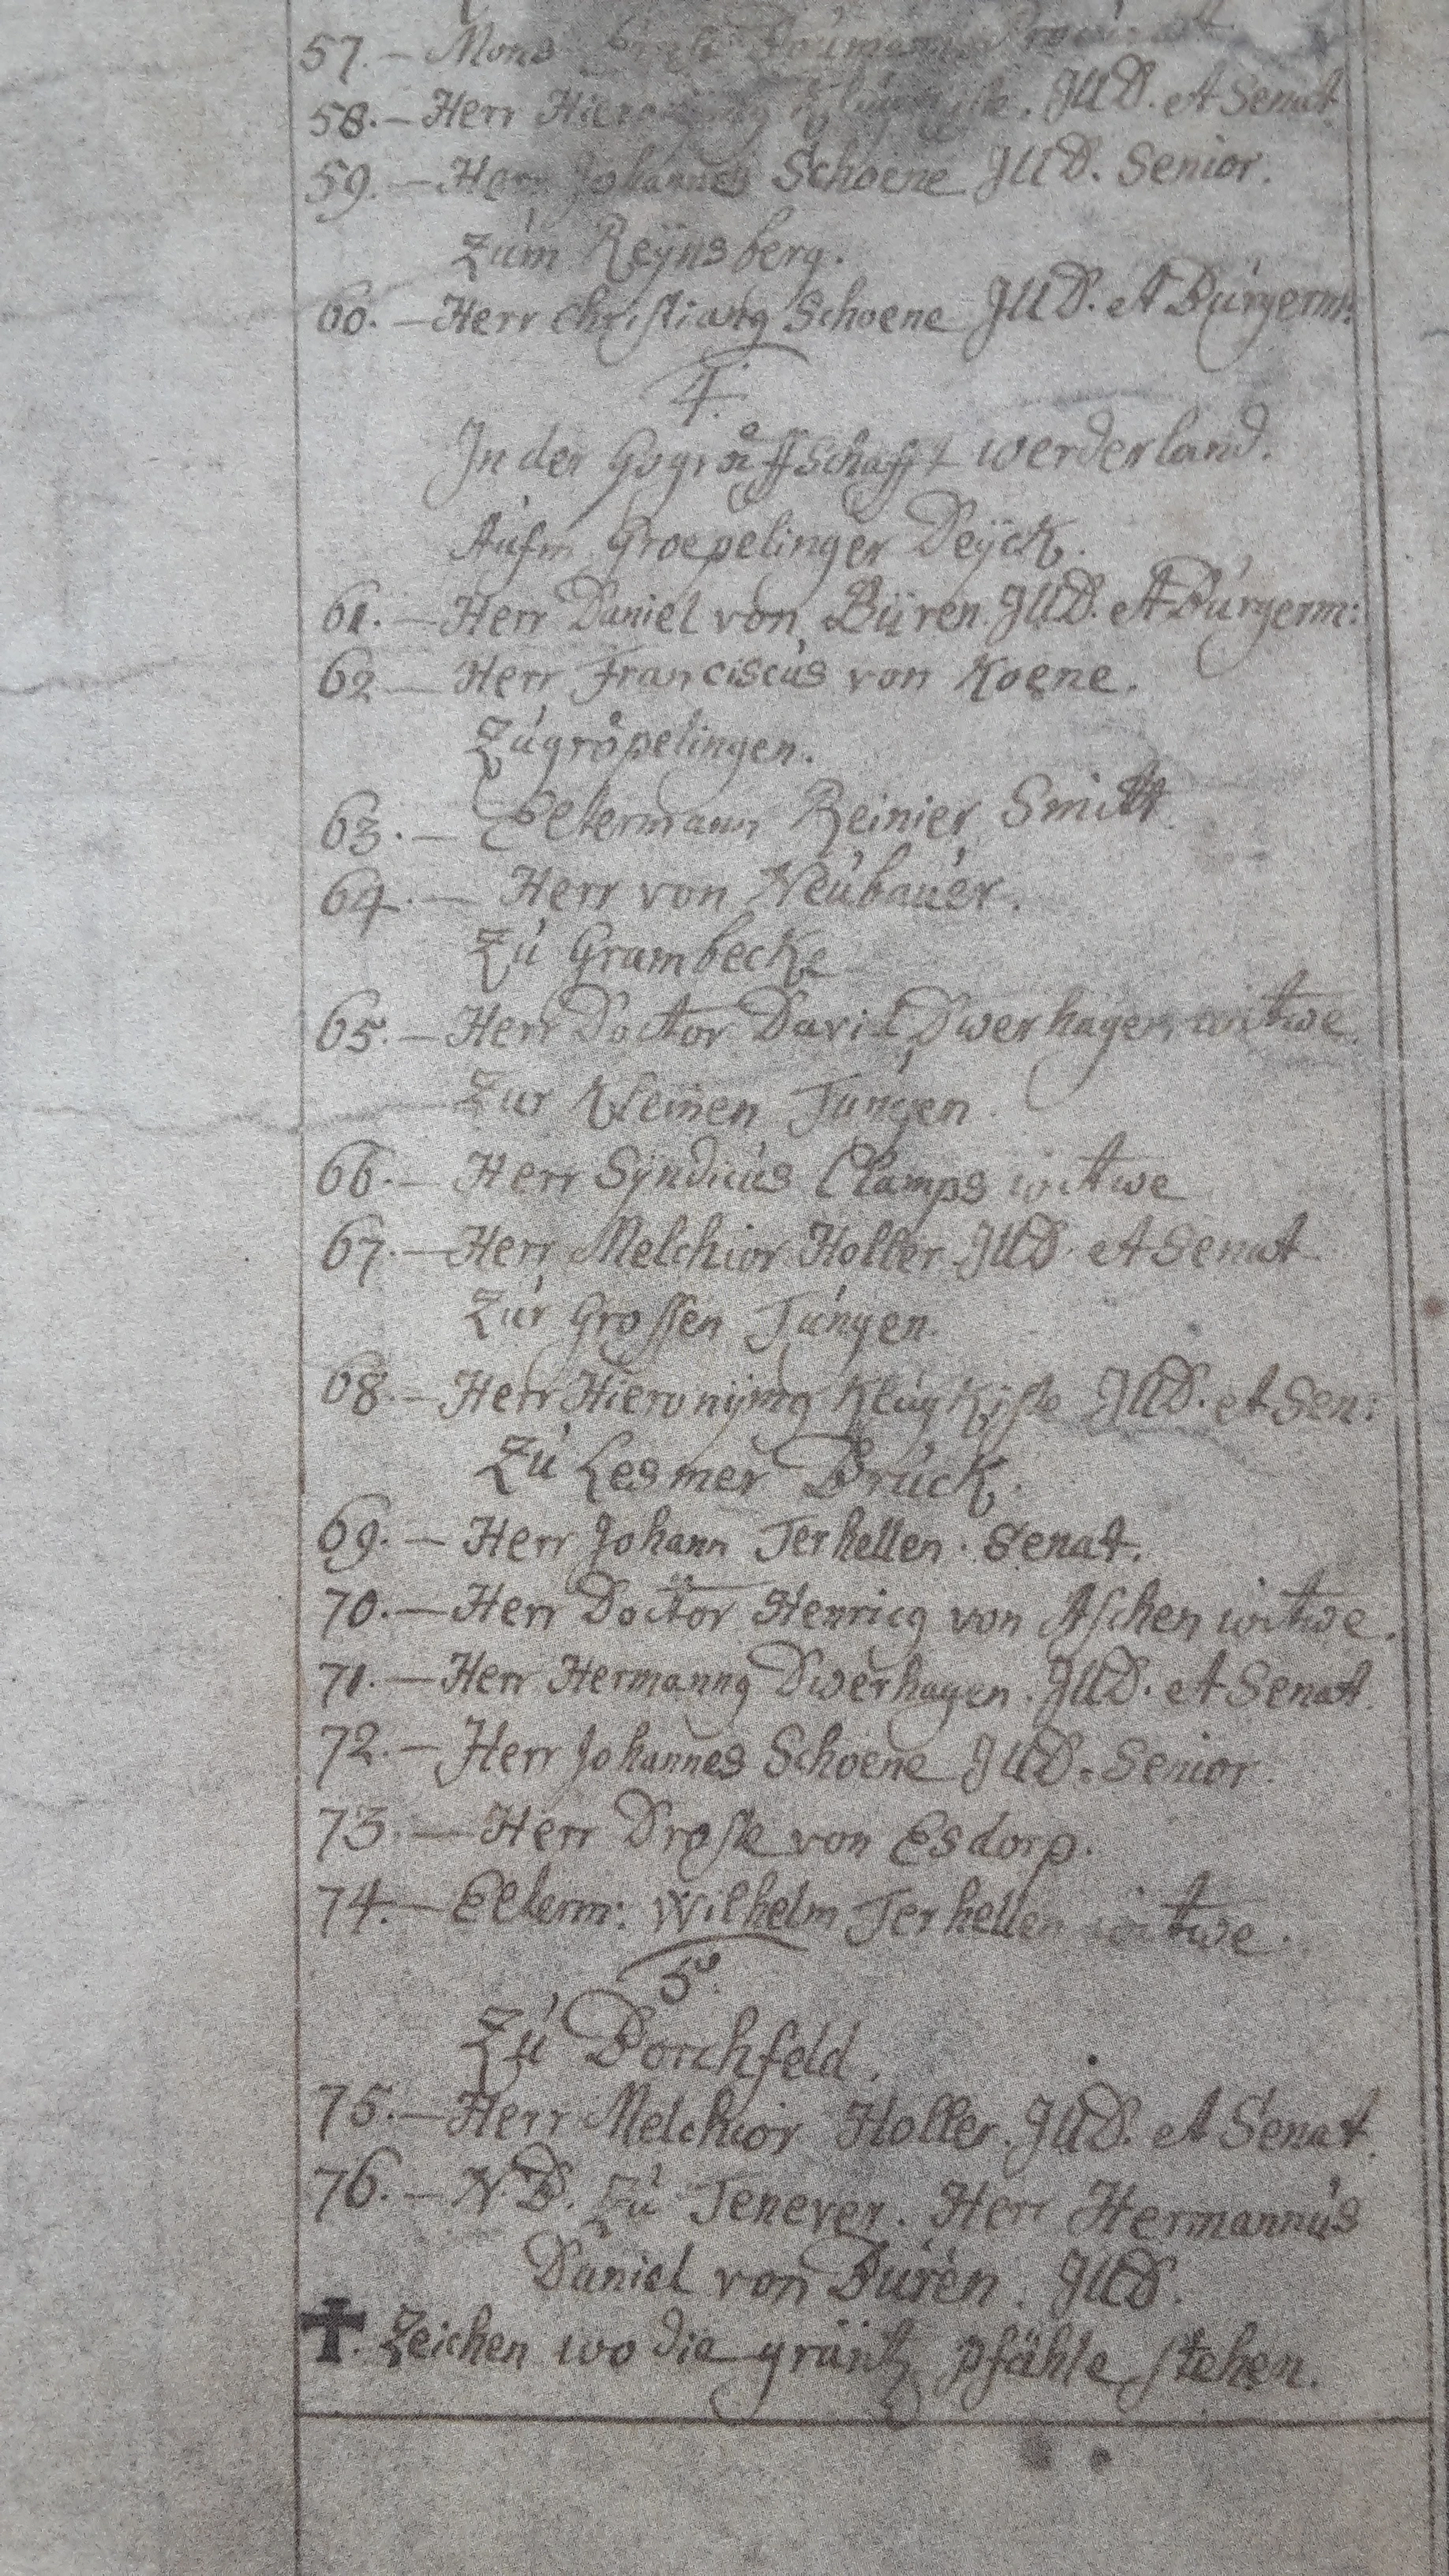 57. – Mons
58. – Herr Hieronymg Klugkiste. JUD. et Senat.
59. – Herr Johannes Schoene JUD. Senior.
Zúm Reÿnsberg.
60. – Herr Christiang Schoene JUD. et Búrgerm:
4.
In der Gogräffschafft werderland.
Aúfm Groepelinger Deÿck.
61. – Herr Daniel von Büren JUD. et Búrgerm:
62 – Herr Franciscús von Koene.
Zúgröpelingen.
63. – Eltermann Reinier Smitt.
64. – Herr von Neúbaúer.
Zú Grambecke
65. – Herr Doctor David Dwerhagen witwe.
Zur Kleinen Júngen.
66. – Herr Syndicús Clamps witwe
67. – Herr Melchior Holler JUD. et Senat
Zúr Grossen Júngen.
68. – Herr Hieronÿmg Klúgkiste JUD. et Sen:
Zú Lesmer Brúck.
69. – Herr Johann Terhellen. Senat.
70. – Herr Doctor Henricg von Aschen witwe.
71. – Herr Hermanng Dwerhagen. JUD. et Senat.
72. – Herr Johannes Schoene JUD. Senior.
73. – Herr Droste von Esdorp.
74. – Elterm: Wilhelm Terhellen witwe.
5.
Zú Borchfeld.
75. – Herr Melchior Holler. JUD. et Senat.
76. – N.B. Zú Tenever. Herr Hermannús
Daniel von Búren. JUD.
✝. Zeichen wo die gräntz pfähle stehen.